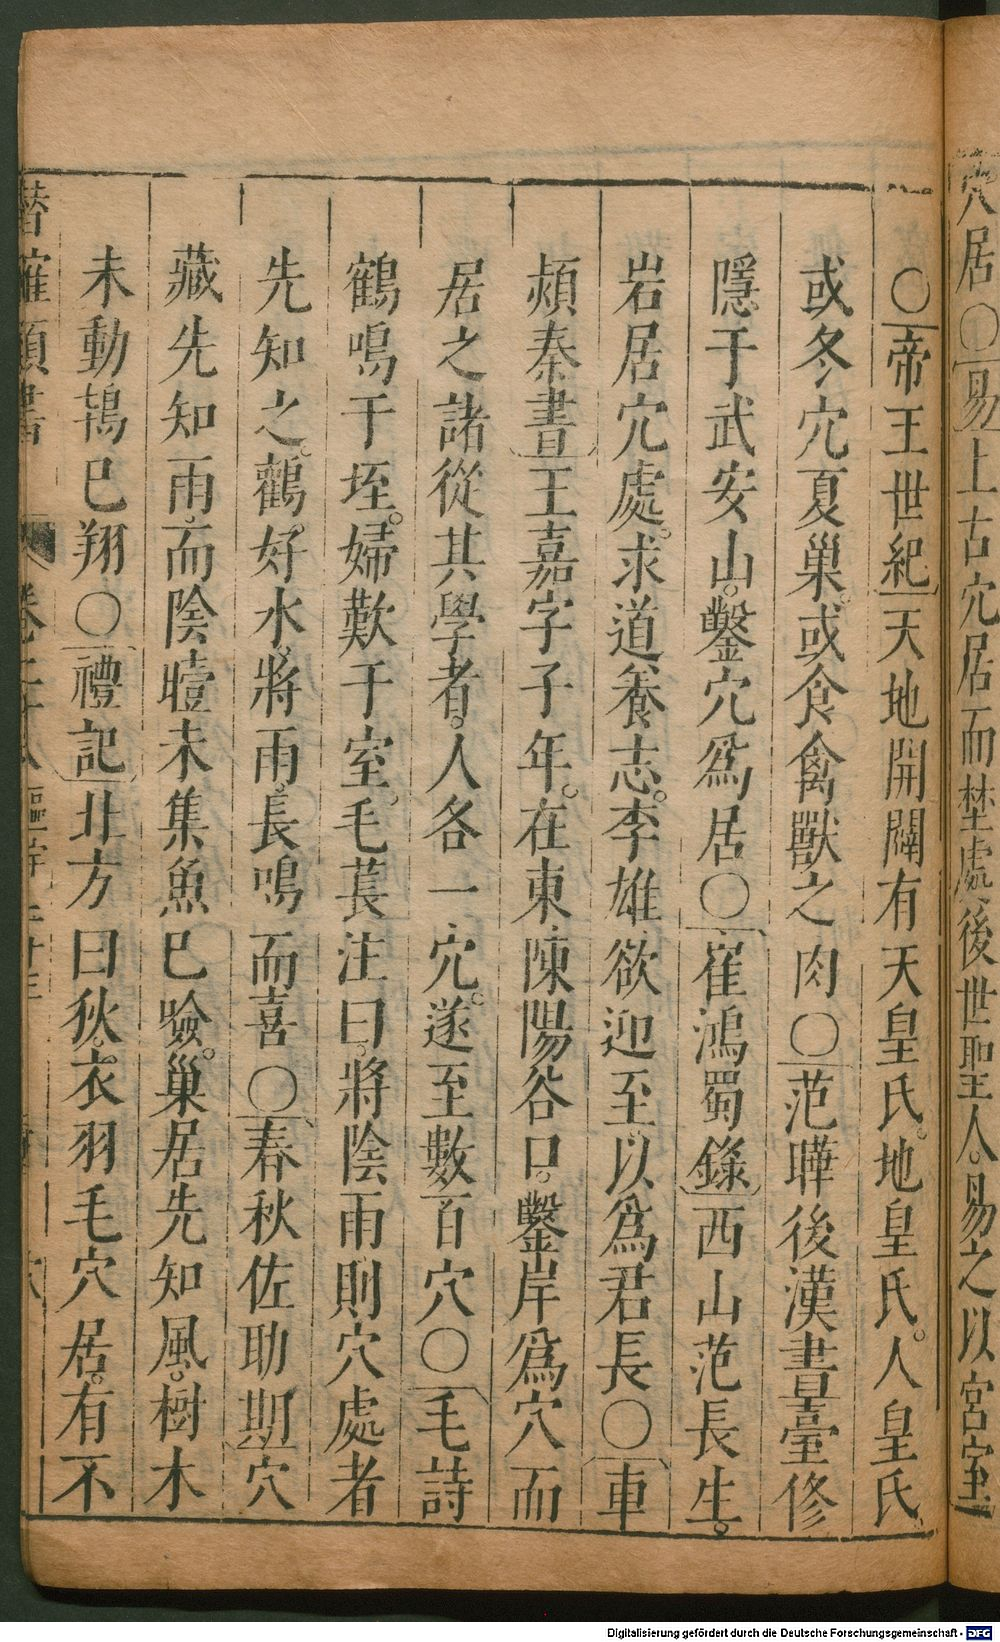 穴居○易上古穴居而埜處後世聖人。易之以宮室
○帝王世紀天地開闢有天皇氏。地皇氏。人皇氏。
或冬穴夏巢。或食禽獸之肉○范曄後漢書臺修
隱于武安山。鑿穴爲居○崔鴻蜀錄西山范長生。
岩居穴處。求道養志。李雄欲迎至以爲君長○車
頻秦書王嘉字子年。在東陽谷口。鑿岸爲穴而
居之諸從其學者。人各一穴。遂至數百穴○毛詩
鶴鳴于垤。婦歎于室。毛萇注曰將陰雨則穴處者
先知之。鸛好水。將雨。長鳴而喜○春秋佐助期穴
藏先知雨。而陰曀未集魚已噞。巢居先知風。樹木
未動鴇巳翔○禮記北方曰狄。衣羽毛穴居。有不
Digitalisierung gefördert durch die Deutsche Forschungsgemeinschaft - DFG